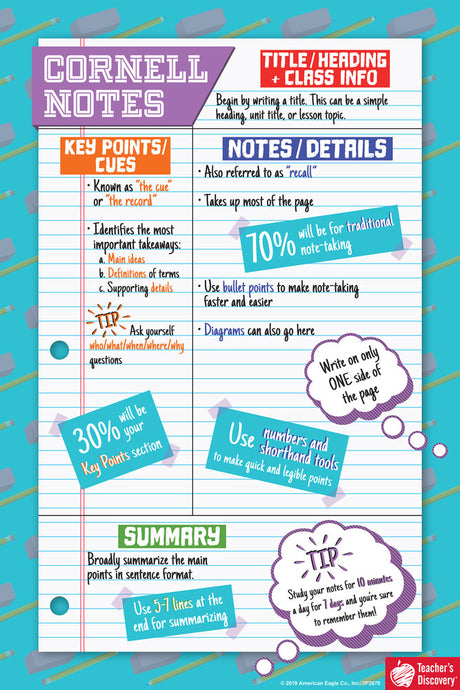 CORNELL
NOTES
TITLE/HEADING
+ CLASS INFO
Begin by writing a title. This can be a simple
heading, unit title, or lesson topic.
KEY POINTS/
CUES
• Known as "the cue"
or "the record"
• Identifies the most
important takeaways:
a. Main ideas
b. Definitions of terms
c. Supporting details
TIP
Ask yourself
who/what/when/where/why
questions
30% will be
your
Key Points section
NOTES/DETAILS
• Also referred to as "recall"
• Takes up most of the page
70% will be for traditional
note-taking
• Use bullet points to make note-taking
faster and easier
• Diagrams can also go here
Write on only
ONE side of
the page
Use numbers and
shorthand tools
to make quick and legible points
SUMMARY
Broadly summarize the main
points in sentence format.
Use 5-7 lines at the
end for summarizing
TIP
Study your notes for 10 minutes
a day for 7 days and you're sure
to remember them!
© 2019 American Eagle Co., Inc/3P2670
Teacher's
Discovery®